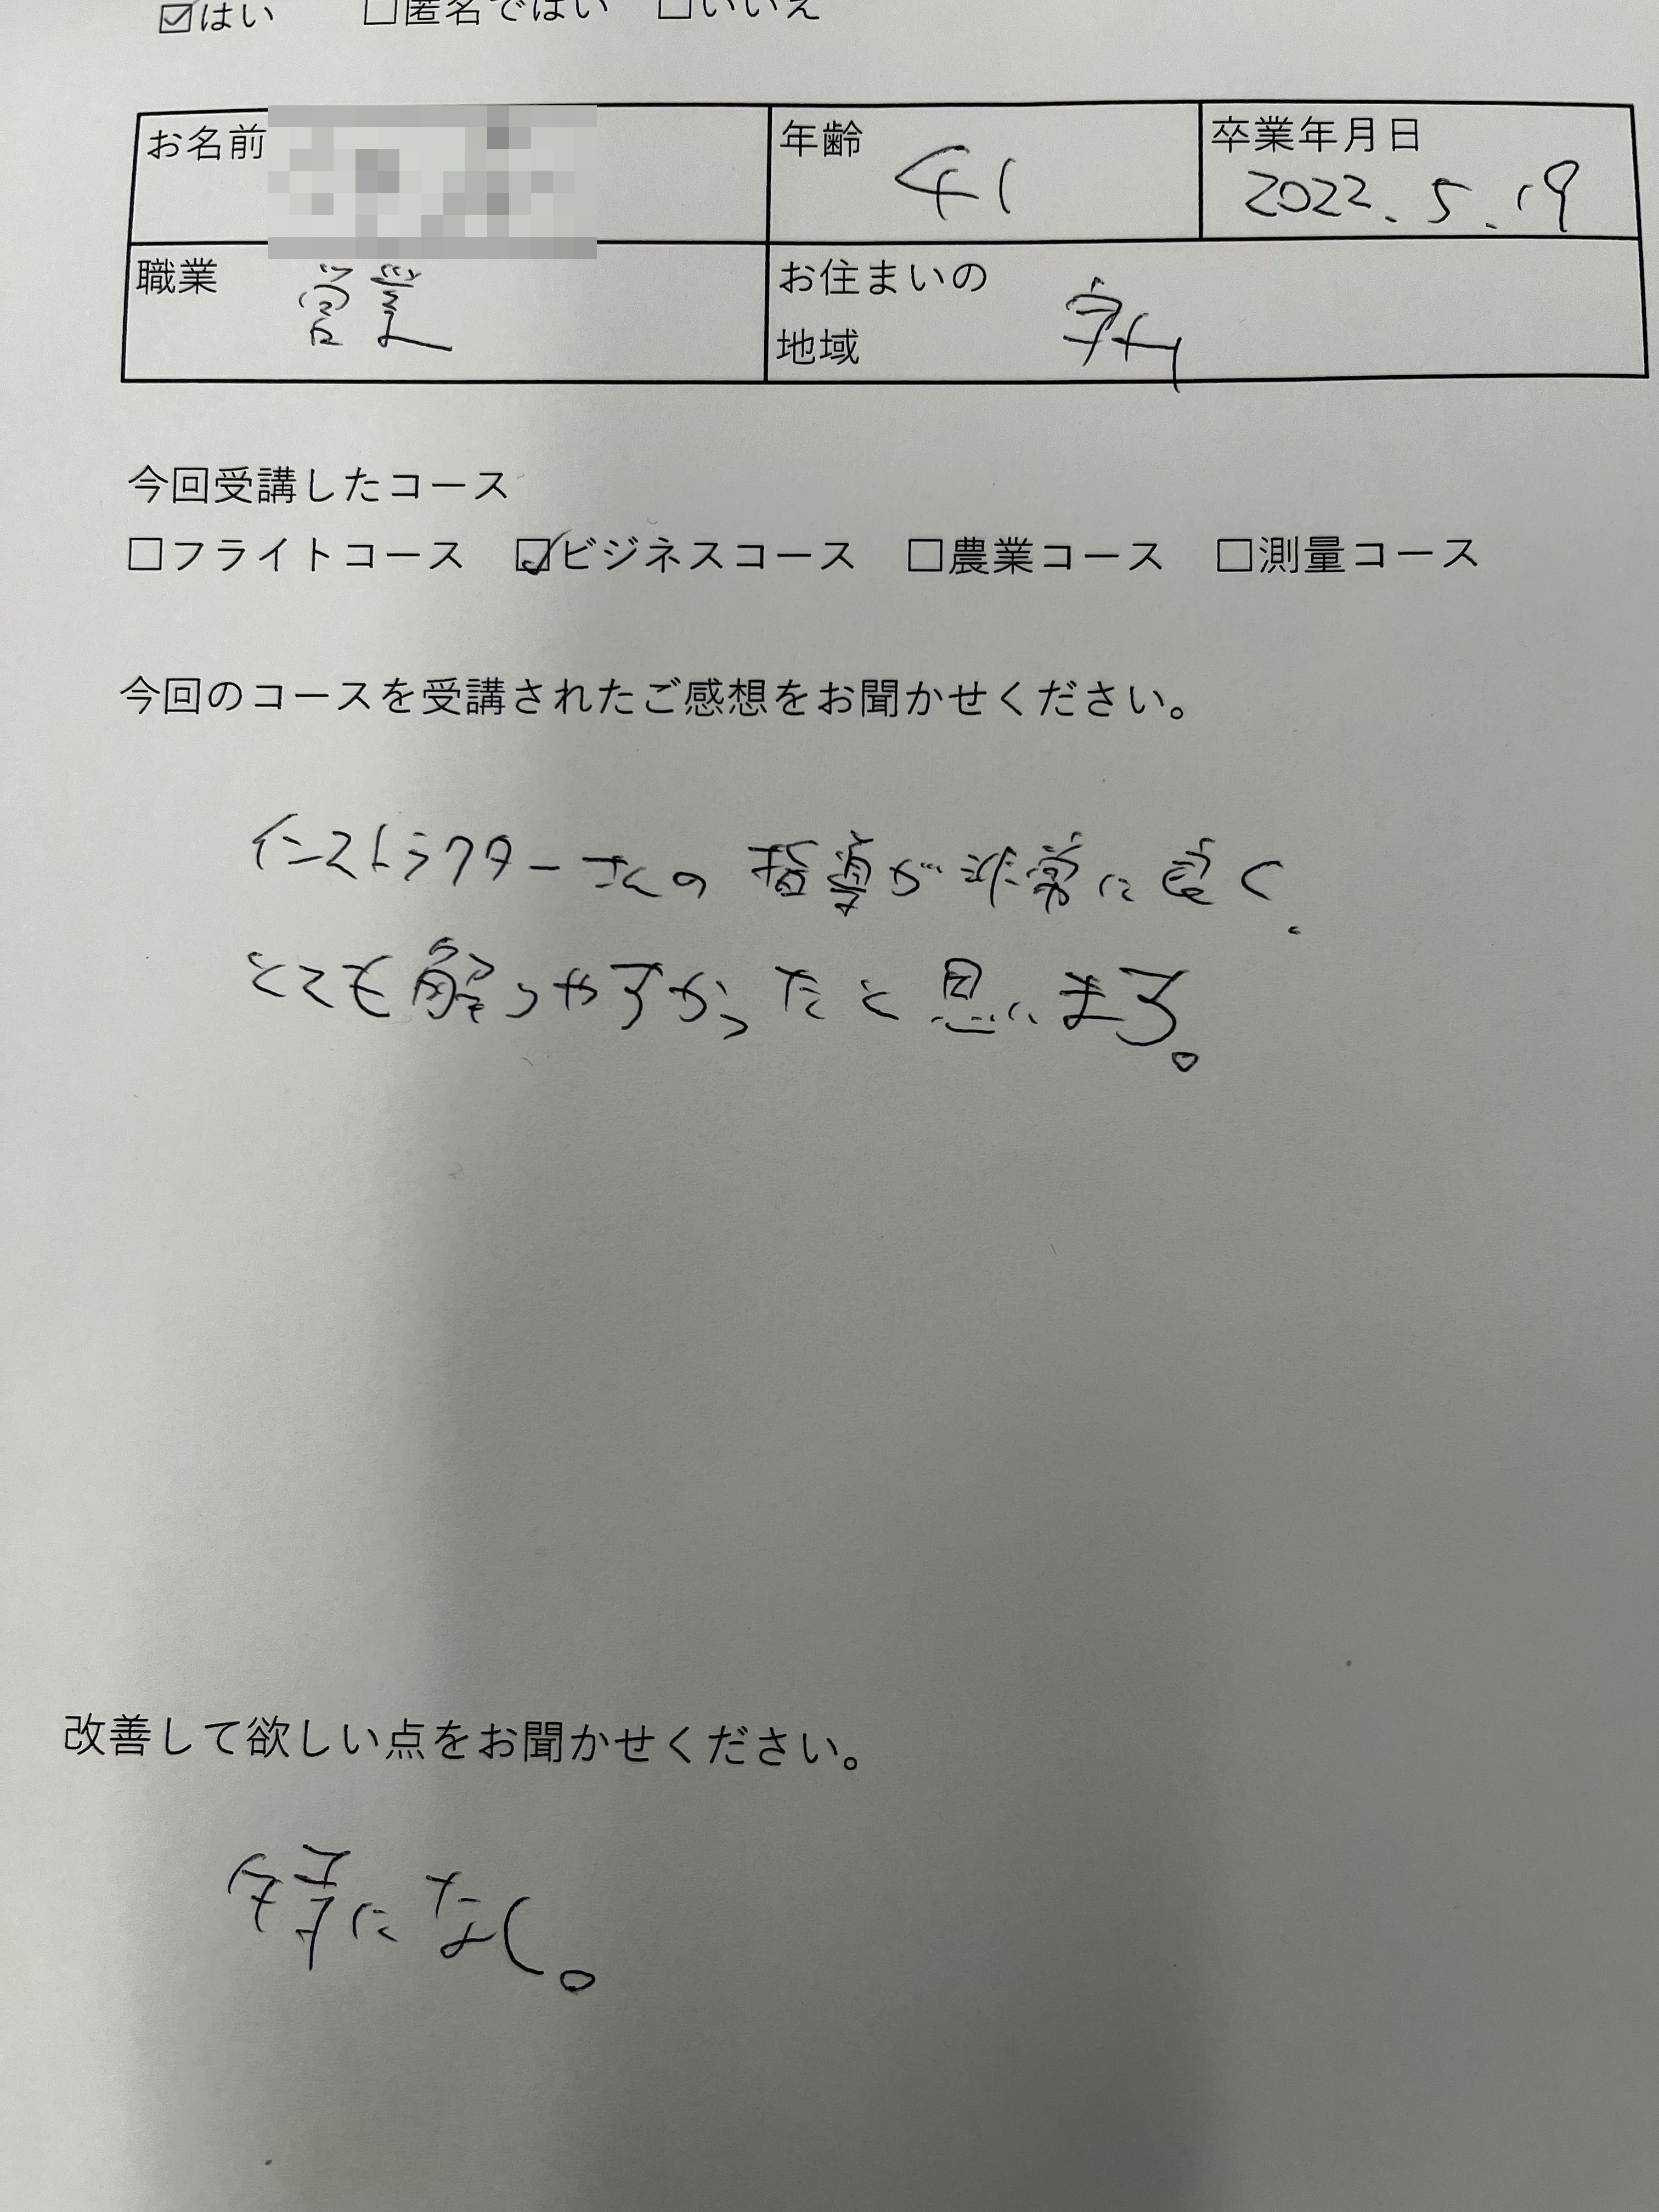 ☑はい　□匿名ではい　□いいえ
お名前
年齢 41
卒業年月日 2022.5.19
職業 営業
お住まいの地域
今回受講したコース
□フライトコース　☑ビジネスコース　□農業コース　□測量コース
今回のコースを受講されたご感想をお聞かせください。
インストラクターさんの指導が非常に良く、
とても解りやすかったと思います。
改善して欲しい点をお聞かせください。
特になし。